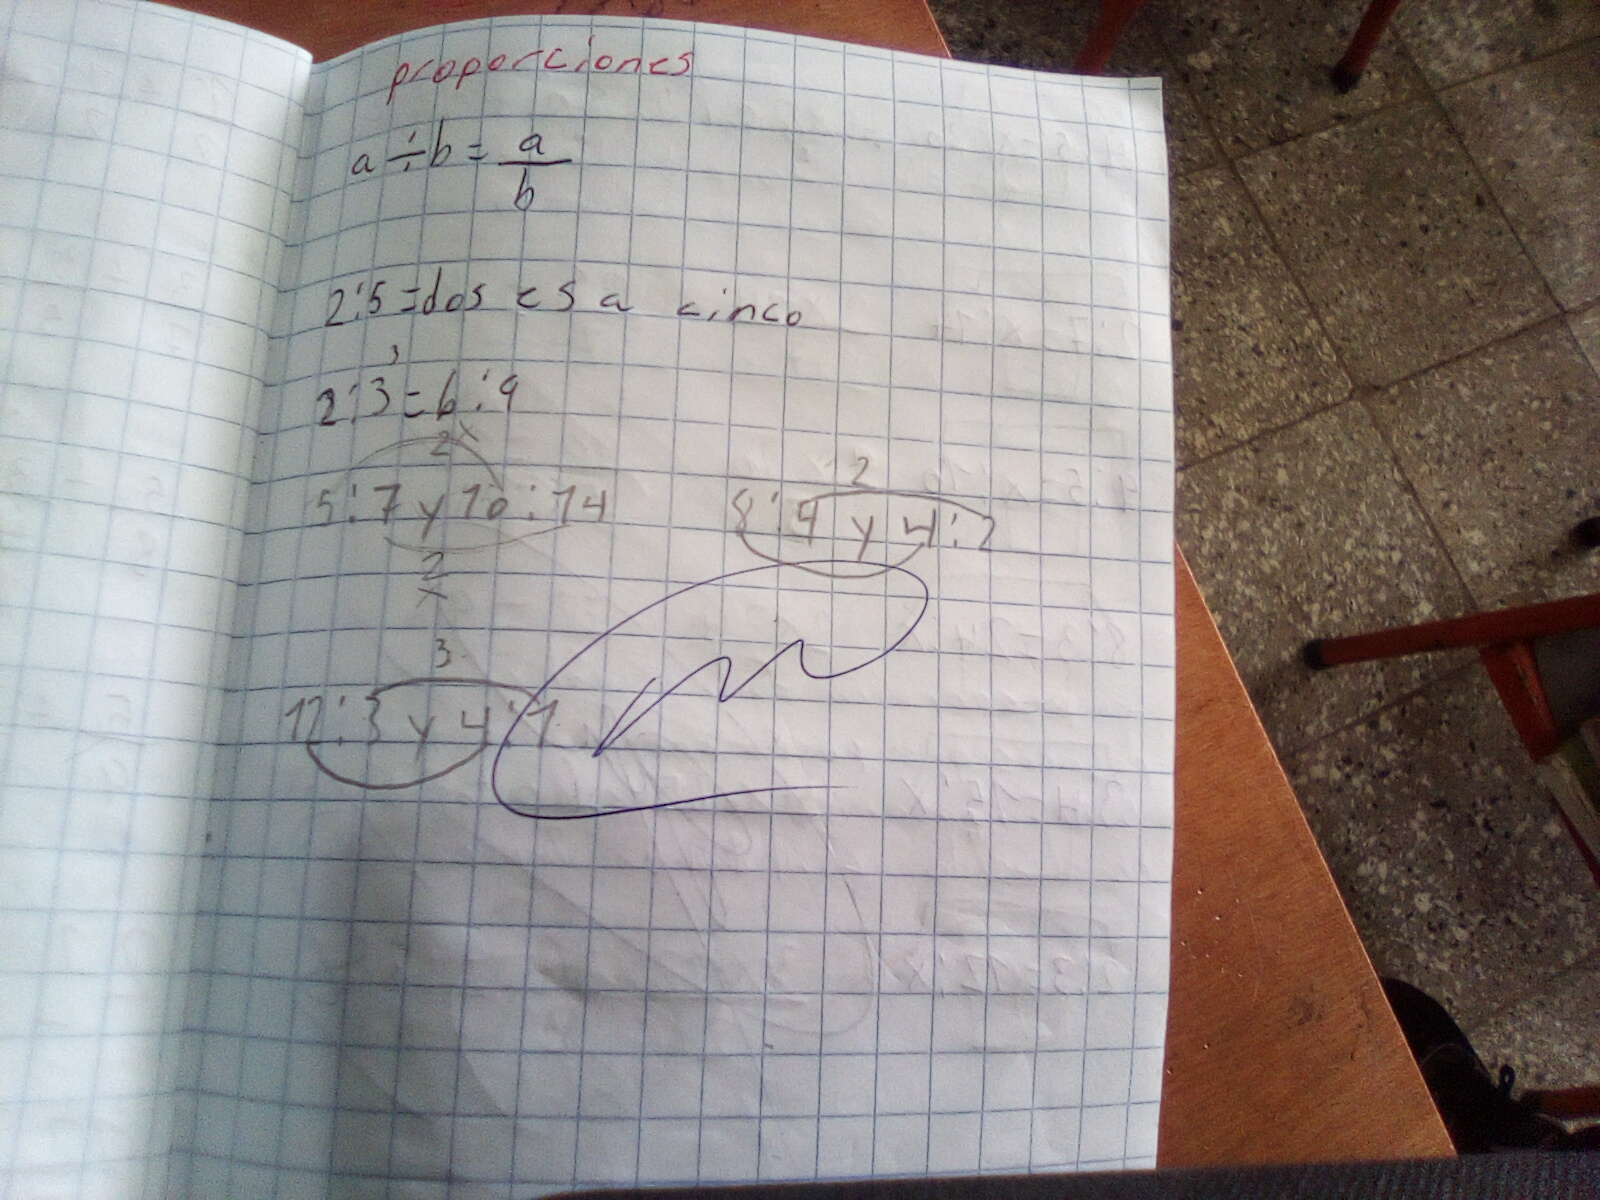 proporciones
a ÷ b = a
b
2:5=dos es a cinco
3
2:3=6:9
2x
5:7 y 10:14
2
x
2
8:4 y 4:2
3
12:3 y 4:1